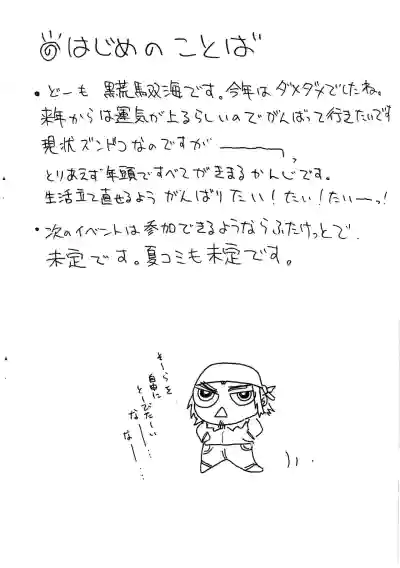 はじめのことば
・どーも 黒荒馭海です。今年はダメダメでしたね。
来年からは運気が上るらしいのでがんばって行きたいです
現状ズンドコなのですが――――っ
とりあえず年頭ですべてがきまるかんじです。
生活立て直せるよう がんばりたい!たい!たいーっ!
・次のイベントは参加できるようならふたけっとで
未定です。夏コミも未定です。
そーらを
自由に
とーびたーい
なー――…
なー――…